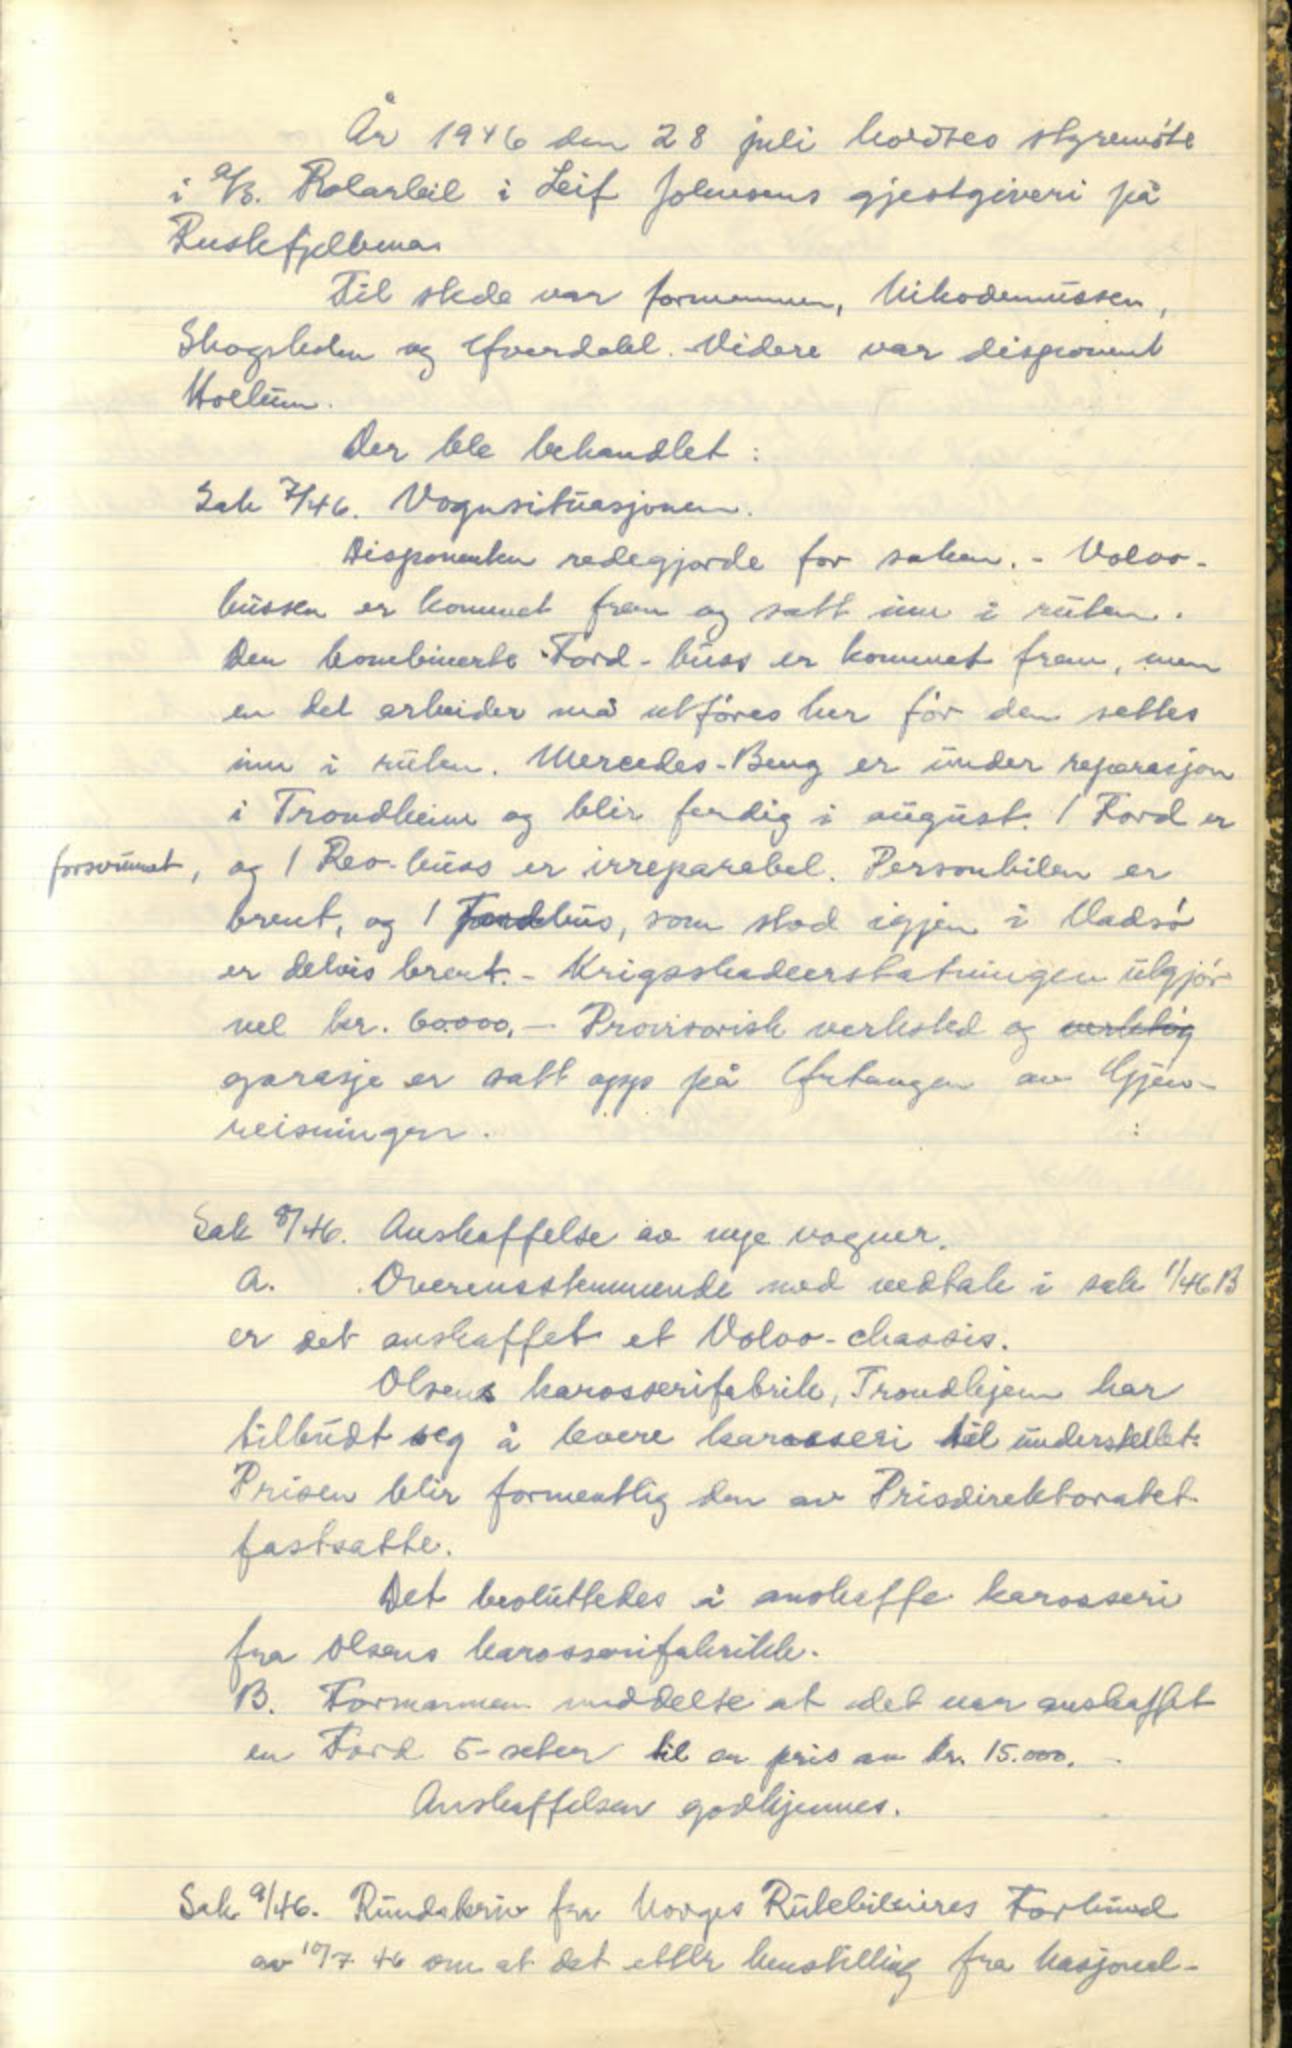 År 1946 den 28 juli holdtes styremöte
i A/S. Polarbil i Leif Johnsens gjestgiveri på
Ruskfjellbma
Til stede var formannen, Nikodemussen,
Skogholm og Hverdahl. Videre var disponent
Hollum.
Der ble behandlet:
Sak 7/46. Vognsituasjonen.
Disponenten redegjorde for saken. - Volvo-
bussen er kommet fram og satt inn i ruten.
Den kombinerte Ford-buss er kommet fram, men
en del arbeider må utföres her för den settes
inn i ruten. Mercedes-Benz er under reparasjon
i Trondheim og blir ferdig i august. 1 Ford er
forsvunnet, og 1 Reo-buss er irreparabel. Personbilen er
brent, og 1 Fordbus, som stod igjen i Vadsö
er delvis brent. - Krigsskadeerstatningen utgjör
vel kr. 60.000,- Provisorisk verksted og verktög
garasje er satt opp på av Gjen-
reisningen.
Sak 8/46. Anskaffelse av nye vogner.
A. Overensstemmende med vedtak i sak 1/46 B
er det anskaffet et Volvo-chassis.
Olsens karosserifabrik, Trondhjem har
tilbudt seg å levere karosseri til understellet.
Prisen blir formentlig den av Prisdirektoratet
fastsatte.
Det besluttedes å anskaffe karosseri
fra Olsens karosserifabrikk.
B. Formannen meddelte at det var anskaffet
en Ford 5-seter til en pris av kr. 15.000.-
Anskaffelsen godkjennes.
Sak 9/46. Rundskriv fra Norges Rutebileieres Forbund
av 10/7 46 om at det etter henstilling fra Nasjonal-